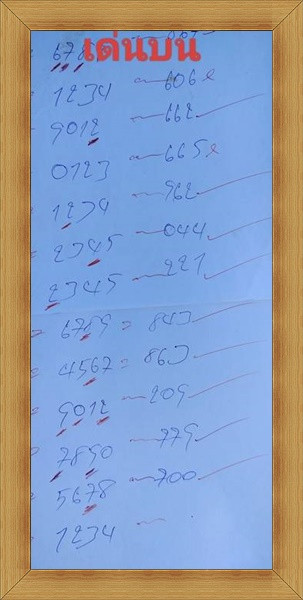 เด่นบน
678
1234 606 ร
9012 662
0123 665 ร
1234 962
2345 044
2345 221
6789 = 843
4567 = 863
9012 209
7890 779
5678 700
1234